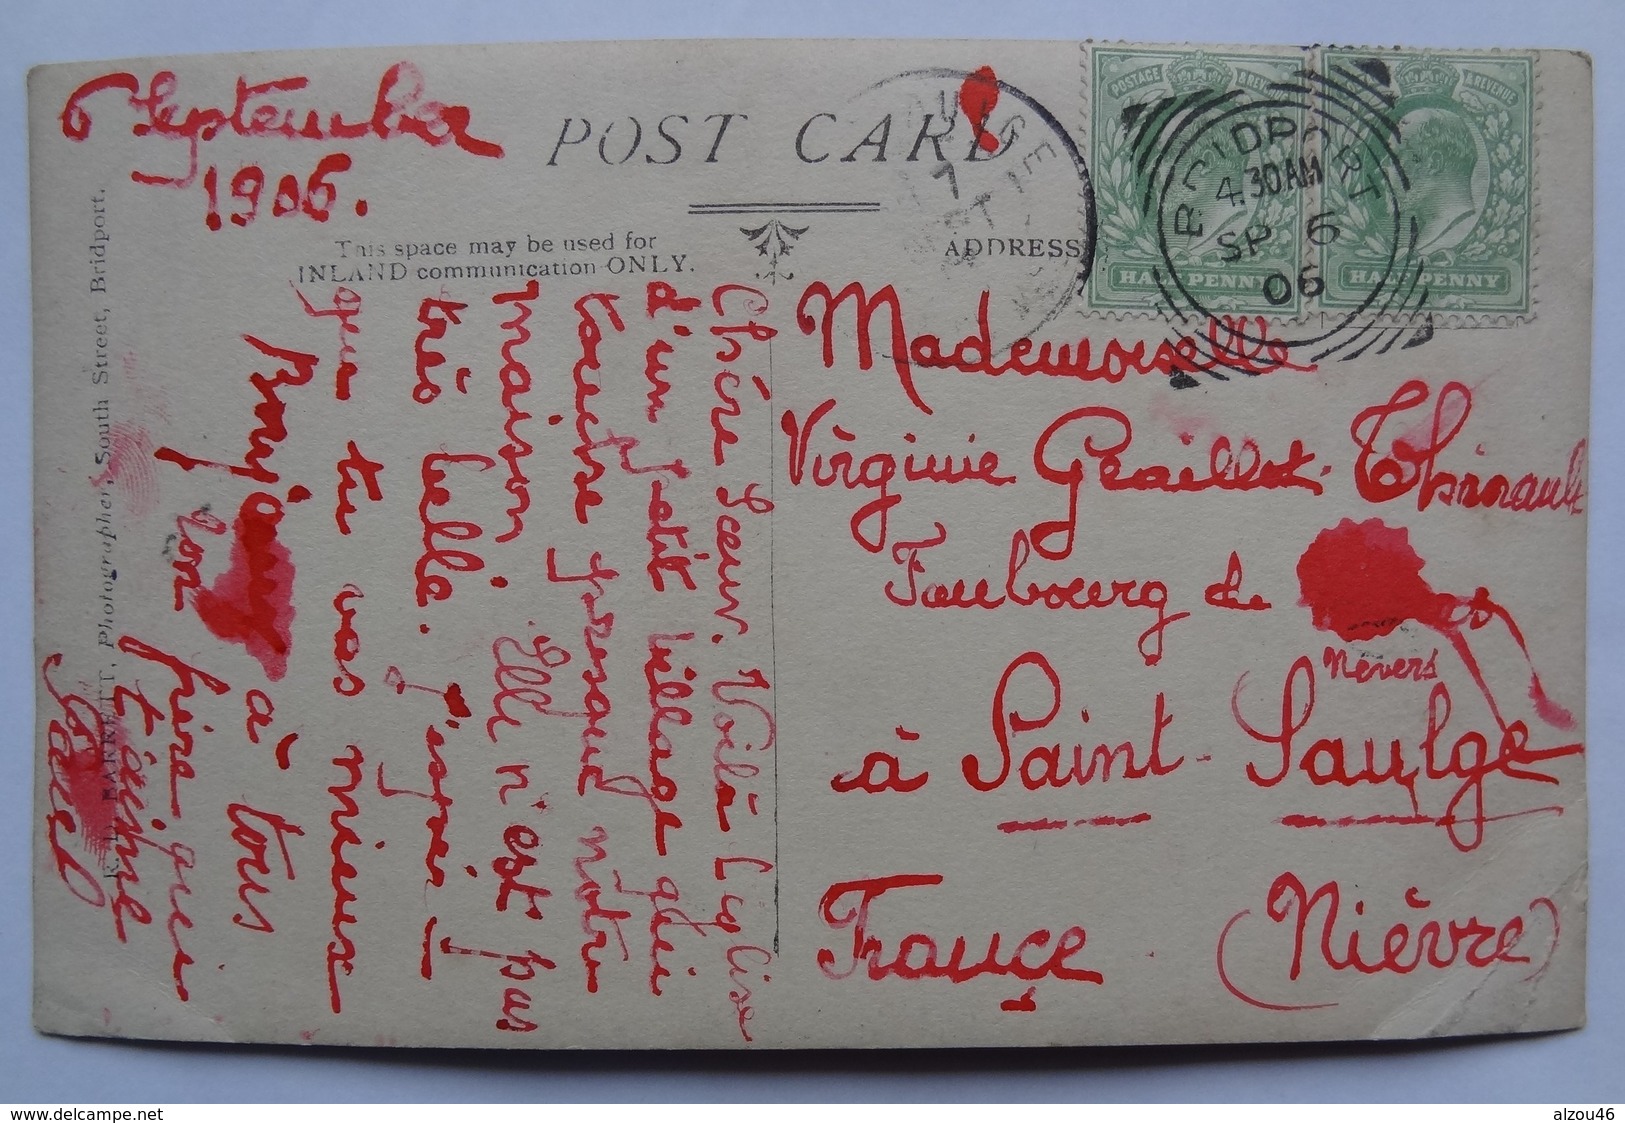 6 September
1906.
POST CARD
This space may be used for
INLAND communication ONLY.
ADDRESS
POSTAGE & REVENUE
HALFPENNY
POSTAGE & REVENUE
HALFPENNY
BRIDPORT
4.30AM
SP 6
06
R. D. BARRETT, Photographer, South Street, Bridport.
Chère Sœur. Voilà l'eglise
d'un petit village qui
touche presque nôtre
maison, Elle n'est pas
très belle. j'espère
que tu vas mieux
Bonjour à tous
Ton frère qui
t'aime
Paul
Mademoiselle
Virginie Graillot. Thinault
Faubourg de
Nevers
à Saint-Saulge
France (Nièvre)
delcampe.net
alzou46